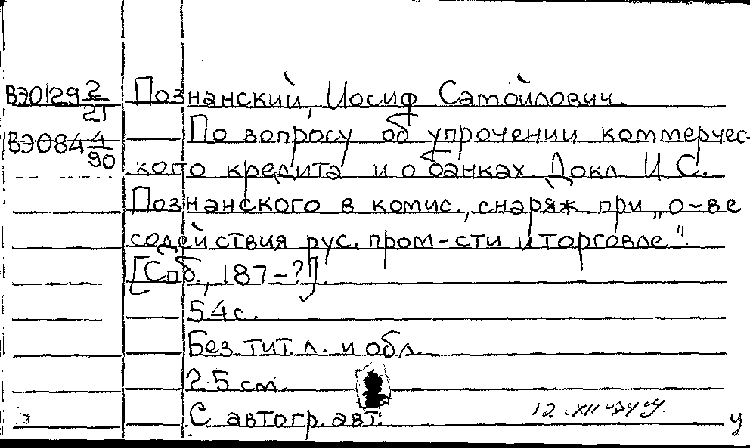 ВЭ0129 2/21 Познанский, Иосиф Самойлович.
ВЭ084 1/90 По вопросу об упрочении коммерчес-
кого кредита и о банках. Докл. И. С.
Познанского в комис., снаряж. при „о-ве
содействия рус. пром-сти и торговле".
[Спб., 187-?].
54 с.
Без тит. л. и обл.
25 см.
С автогр. авт.